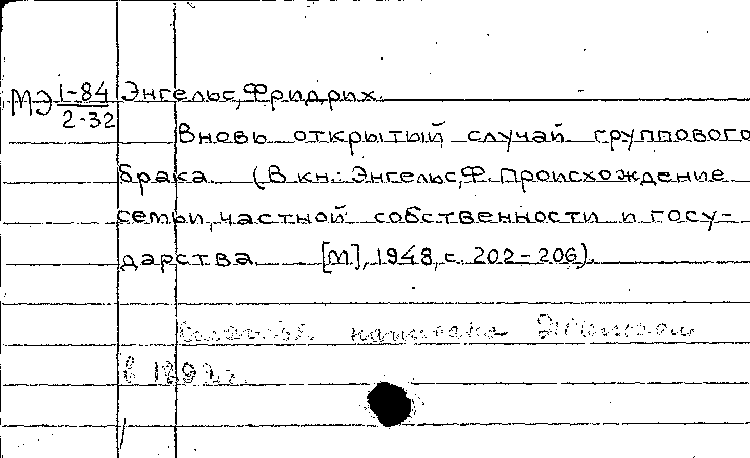 МЭ 1-84 Энгельс, Фридрих.
2-32
Вновь открытый случай группового
брака (В кн.: Энгельс, Ф. Происхождение
семьи, частной собственности и госу-
дарства [М], 1948, с. 202-206).
Статья написана Энгельсом
в 1892 г.